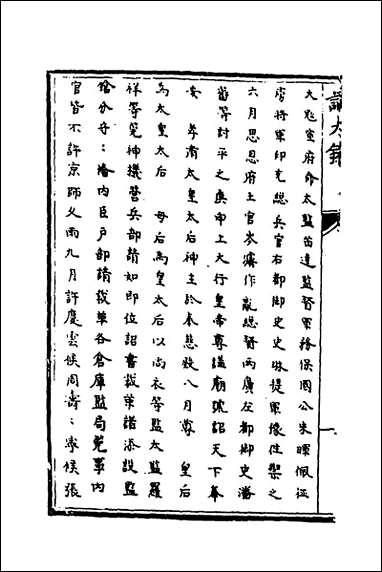 大冦宣府命太監苗逵監督軍務保國公朱暉佩征
虜將軍印充總兵官右都御史史琳提軍務往禦之
六月思恩府土官岑濬作亂總督兩廣左都御史潘
蕃等討平之庚申上大行皇帝尊謚廟號詔天下奉
安 孝肅太皇太后神主於奉慈殿八月尊 皇后
為太皇太后 母后為皇太后以尚衣等監太監羅
祥等筦神機營兵部請如即位詔書裁革諸添設監
鎗分守:格內臣戶部請裁革各倉庫監局筦事內
官皆不許京師久雨九月許慶雲侯周壽:寧侯張